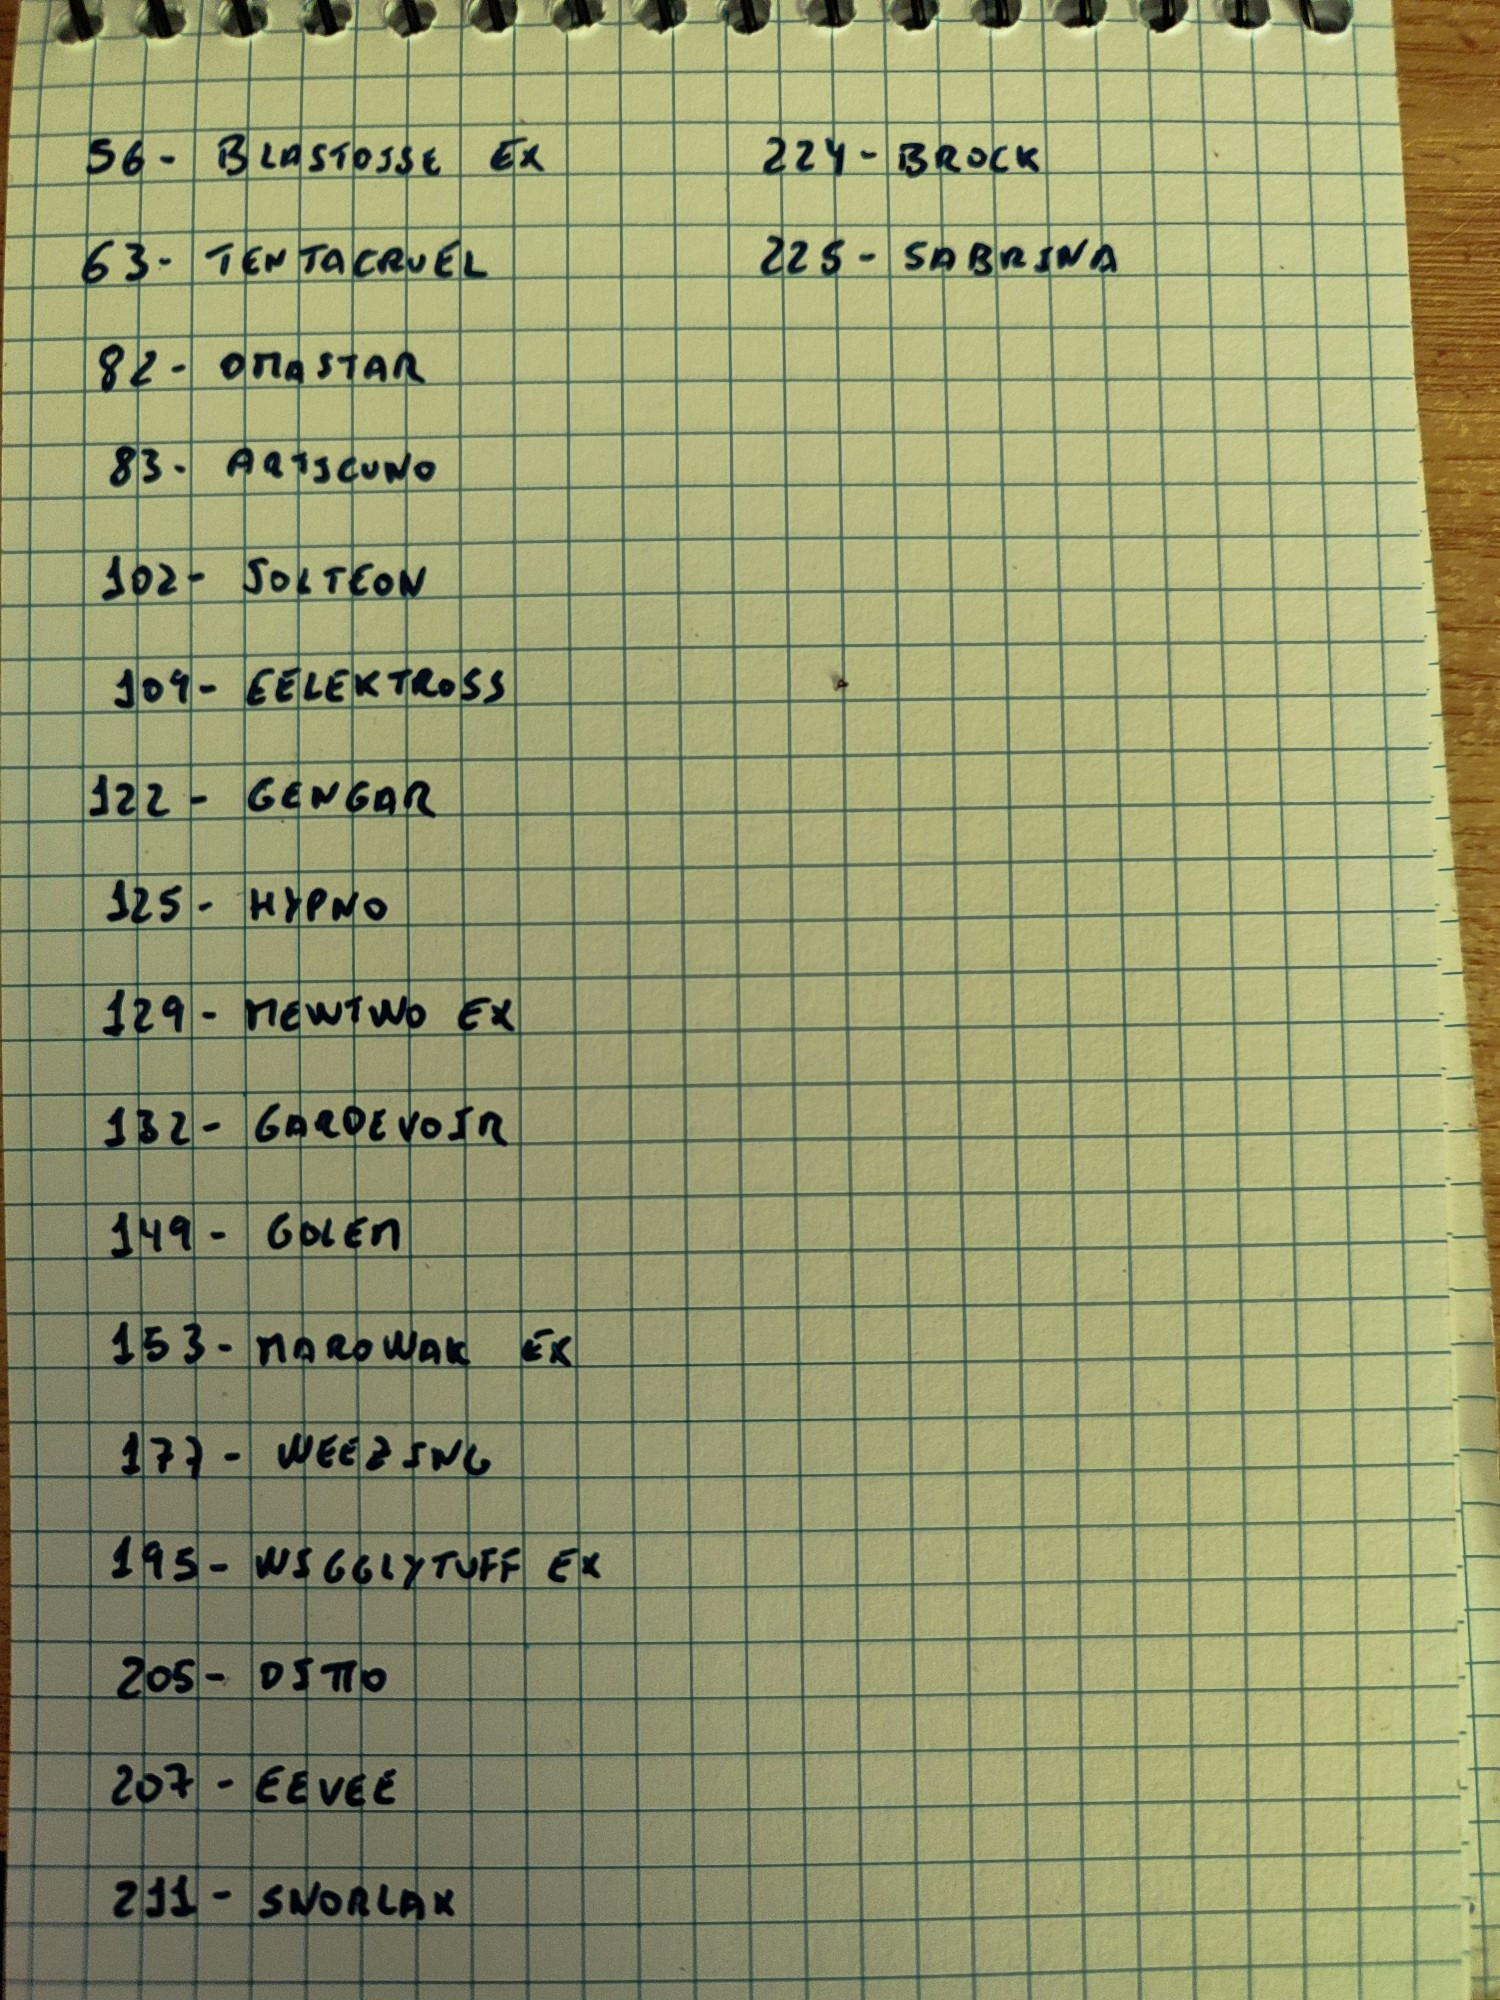 56- BLASTOISE EX
63- TENTACRUEL
82- OMASTAR
83- ARTICUNO
102- JOLTEON
109- EELEKTROSS
122- GENGAR
125- HYPNO
129- MEWTWO EX
132- GARDEVOIR
149- GOLEM
153- MAROWAK EX
177- WEEZING
195- WIGGLYTUFF EX
205- DITTO
207- EEVEE
211- SNORLAX
224- BROCK
225- SABRINA